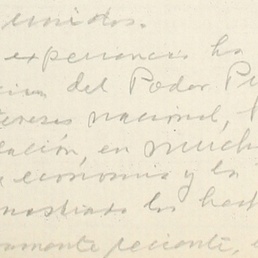 unidos.
experiencia ha
del Poder Pu
nacional,
lación, en much
economía y la
mostrado los hast
mente reciente,